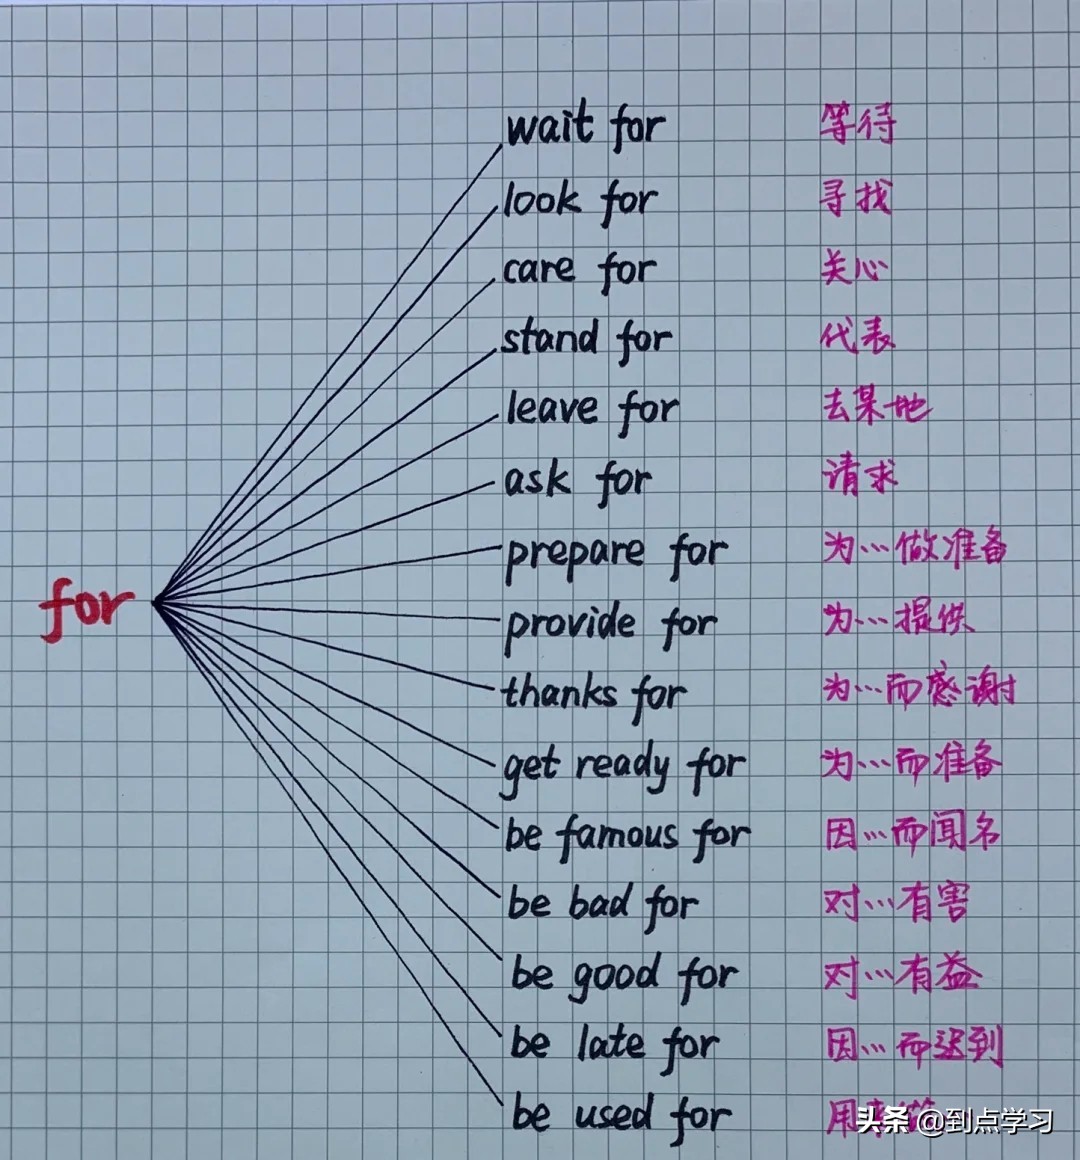 wait for 等待
look for 寻找
care for 关心
stand for 代表
leave for 去某地
ask for 请求
prepare for 为…做准备
for
provide for 为…提供
thanks for 为…而感谢
get ready for 为…而准备
be famous for 因…而闻名
be bad for 对…有害
be good for 对…有益
be late for 因…而迟到
be used for 用来
头条 @到点学习